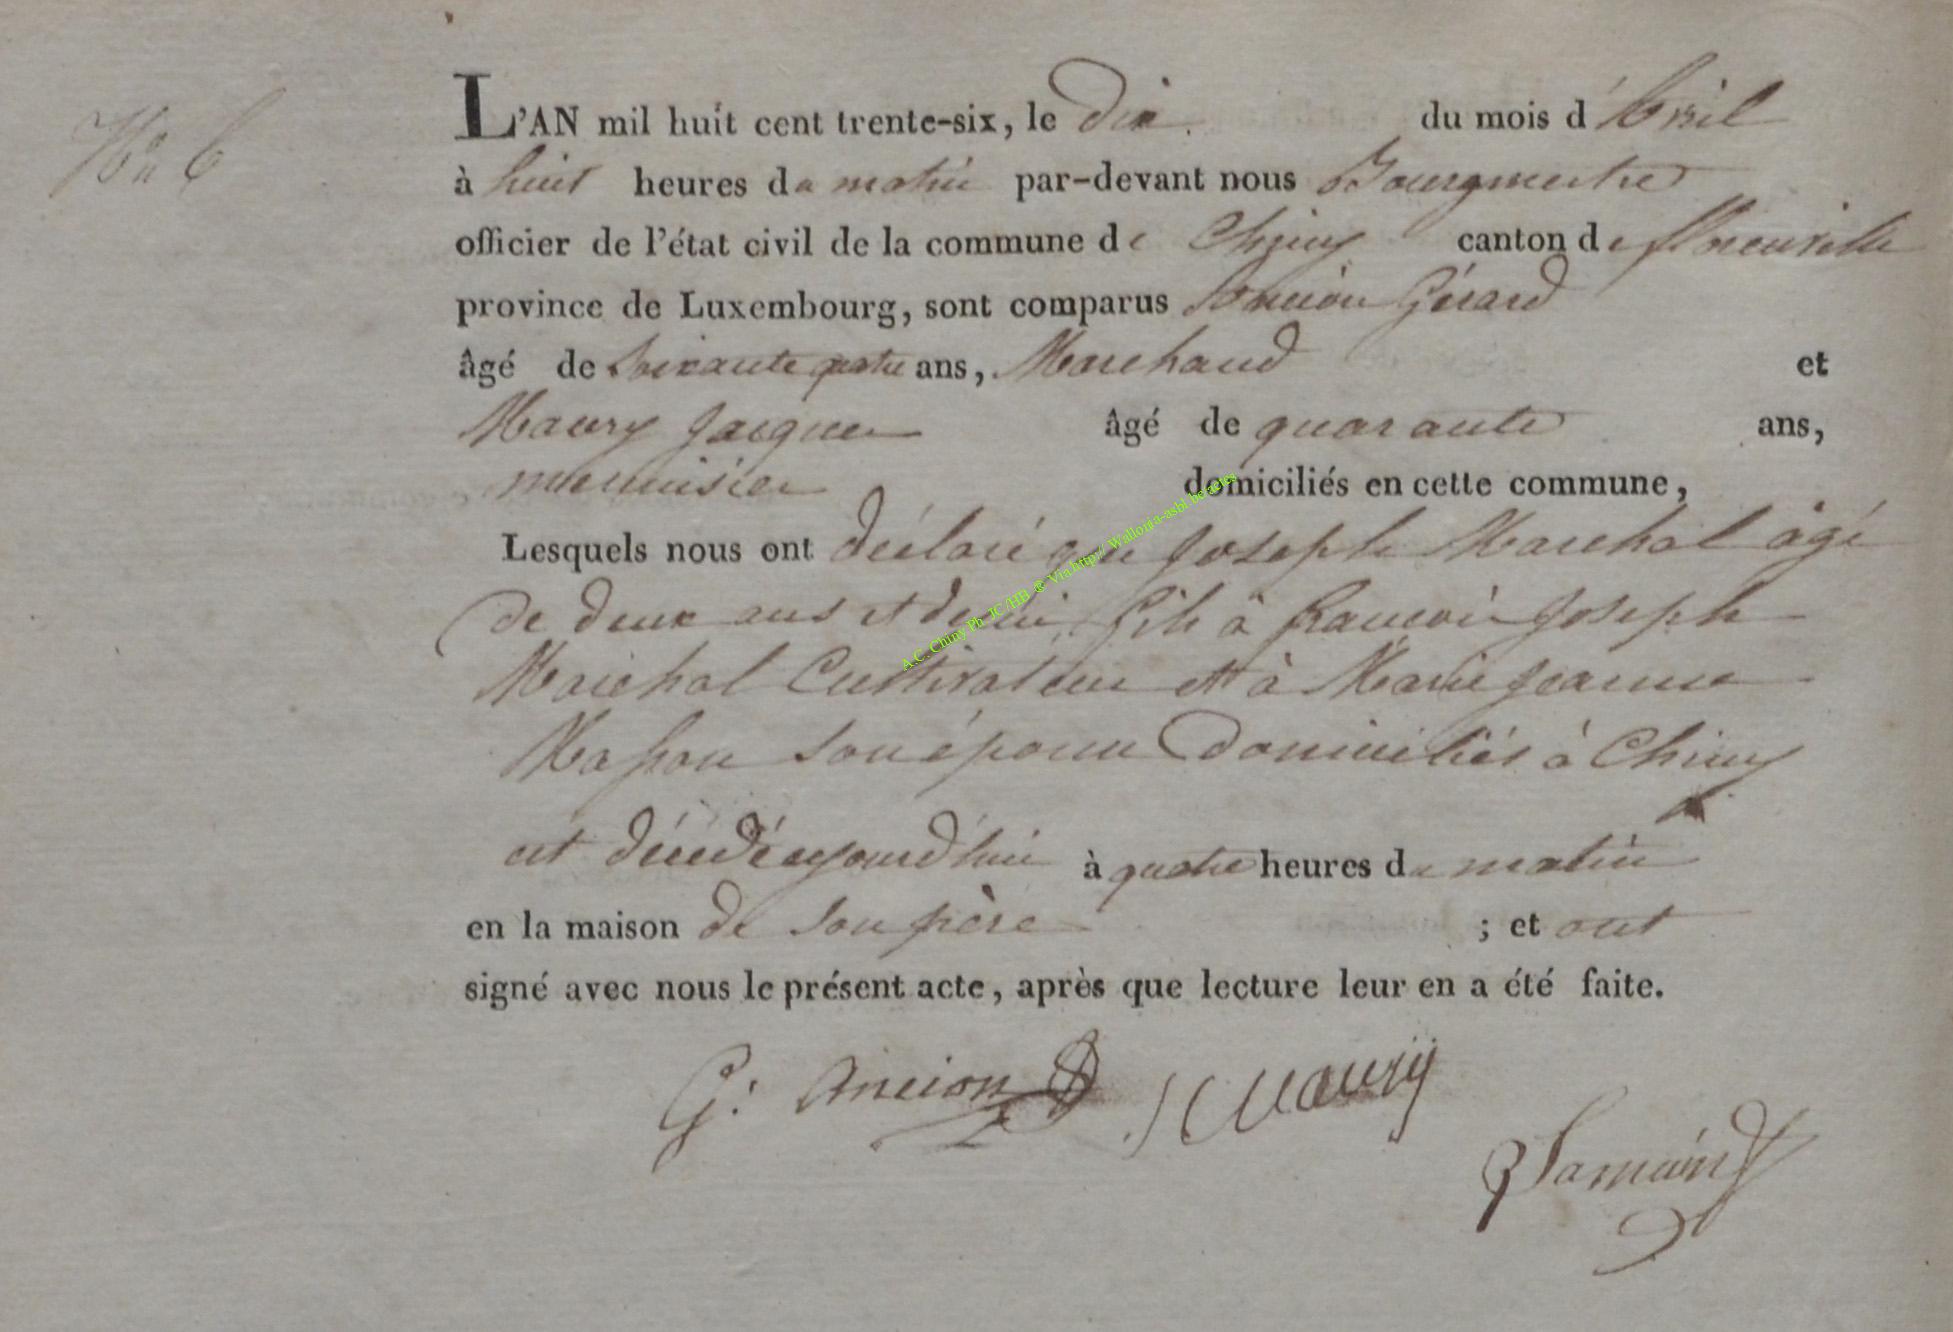 No 6
L'AN mil huit cent trente-six, le dix du mois d'Avril
à huit heures du matin par-devant nous Bourgmestre
officier de l'état civil de la commune de Chiny canton de florenville
province de Luxembourg, sont comparus Ancion Gérard
âgé de soixante quatre ans, Marchand et
Maury Jacques âgé de quarante ans,
menuisier domiciliés en cette commune,
Lesquels nous ont déclaré que Joseph Marchal âgé
de deux ans et demi, fils à francois Joseph
Marchal Cultivateur et à Marie Jeanne
Masson son épouse domiciliés à Chiny
est décédé aujourd'hui à quatre heures du matin
en la maison de son père ; et ont
signé avec nous le présent acte, après que lecture leur en a été faite.
G: Ancion J Maury
A.C. Chiny Ph JC/HB @ Via http:// Wallonia-asbl be actes